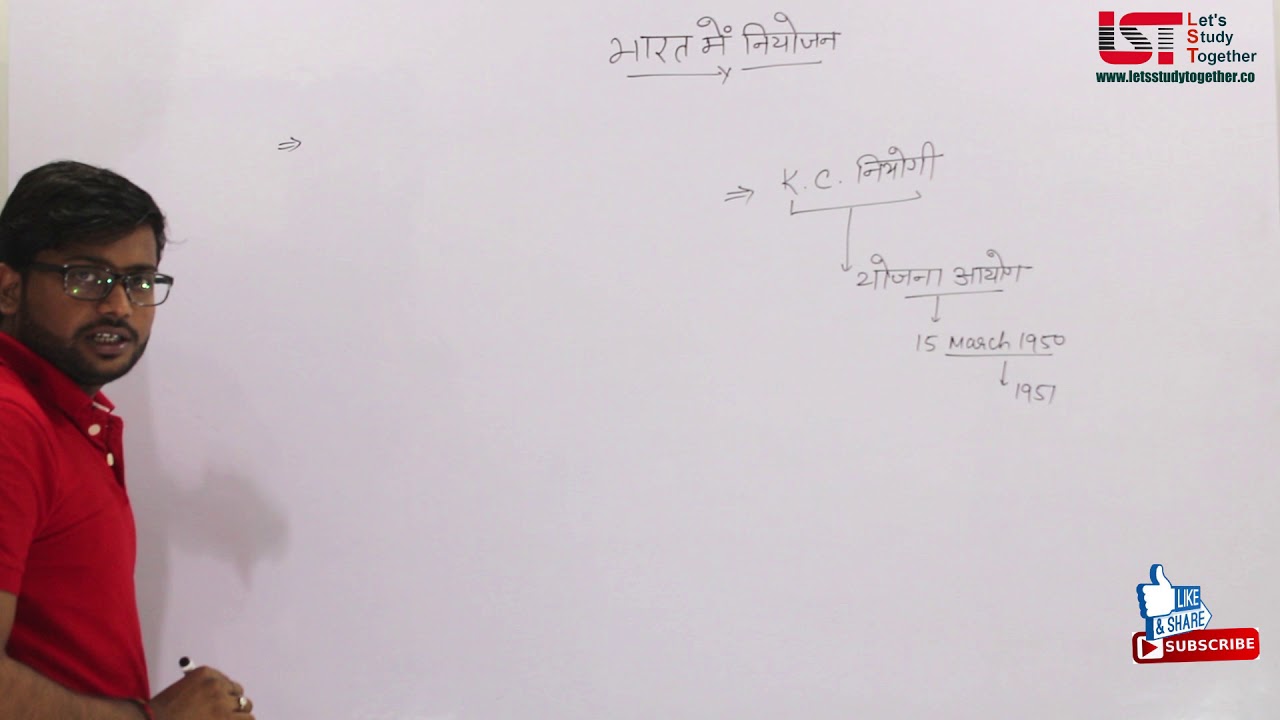 भारत में नियोजन
LST Let's Study Together
www.letsstudytogether.co
⇒
⇒ K. C. नियोगी
योजना आयोग
15 March 1950
1951
LIKE
& SHARE
SUBSCRIBE